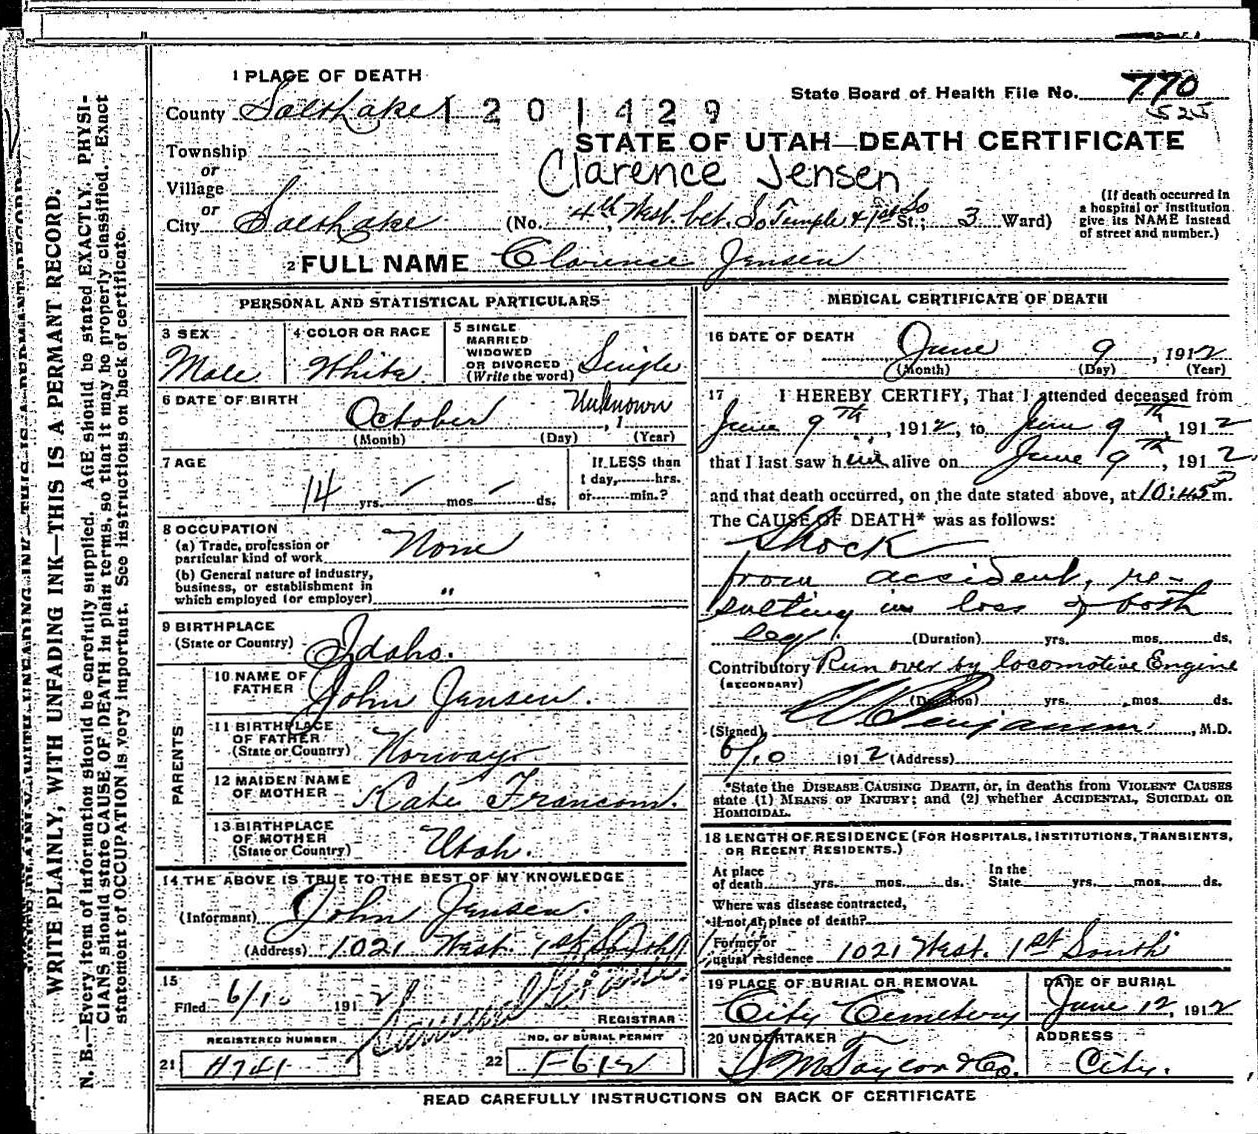 1 PLACE OF DEATH
County Salt Lake 1201429
State Board of Health File No. 770
525
STATE OF UTAH—DEATH CERTIFICATE
Township
or
Village
Clarence Jensen
or
City Salt Lake (No. 4th West. bet. So Temple & 1st So St.; 3 Ward)
(If death occurred in
a hospital or institution
give its NAME instead
of street and number.)
2 FULL NAME Clarence Jensen
PERSONAL AND STATISTICAL PARTICULARS
3 SEX Male
4 COLOR OR RACE White
5 SINGLE
MARRIED
WIDOWED
OR DIVORCED
(Write the word) Single
6 DATE OF BIRTH
October Unknown, 1
(Month) (Day) (Year)
7 AGE
14 yrs. — mos. — ds.
If LESS than
1 day, hrs.
or min.?
8 OCCUPATION
(a) Trade, profession or
particular kind of work None
(b) General nature of industry,
business, or establishment in
which employed (or employer) "
9 BIRTHPLACE
(State or Country) Idaho.
PARENTS
10 NAME OF
FATHER John Jensen.
11 BIRTHPLACE
OF FATHER
(State or Country) Norway
12 MAIDEN NAME
OF MOTHER Kate Francom.
13 BIRTHPLACE
OF MOTHER
(State or Country) Utah.
14 THE ABOVE IS TRUE TO THE BEST OF MY KNOWLEDGE
(Informant) John Jensen.
(Address) 1021 West. 1st South
15
Filed 6/10 1912
REGISTRAR
REGISTERED NUMBER
21 H741
NO. OF BURIAL PERMIT
22 F612
MEDICAL CERTIFICATE OF DEATH
16 DATE OF DEATH
June 9, 1912
(Month) (Day) (Year)
17 I HEREBY CERTIFY, That I attended deceased from
June 9th, 1912, to June 9th, 1912
that I last saw him alive on June 9th, 1912
and that death occurred, on the date stated above, at 10:45 P m.
The CAUSE OF DEATH* was as follows:
Shock
from accident, re-
sulting in loss of both
legs. (Duration) yrs. mos. ds.
Contributory Run over by locomotive Engine
(SECONDARY)
(Duration) yrs. mos. ds.
(Signed) Benjamin, M.D.
6/10 1912 (Address)
*State the DISEASE CAUSING DEATH, or, in deaths from VIOLENT CAUSES
state (1) MEANS OF INJURY; and (2) whether ACCIDENTAL, SUICIDAL OR
HOMICIDAL.
18 LENGTH OF RESIDENCE (FOR HOSPITALS, INSTITUTIONS, TRANSIENTS,
OR RECENT RESIDENTS.)
At place
of death yrs. mos. ds.
In the
State yrs. mos. ds.
Where was disease contracted,
if not at place of death?
Former or
usual residence 1021 West. 1st South
19 PLACE OF BURIAL OR REMOVAL
City Cemetery
DATE OF BURIAL
June 12, 1912
20 UNDERTAKER
S M Taylor & Co.
ADDRESS
City.
READ CAREFULLY INSTRUCTIONS ON BACK OF CERTIFICATE
WRITE PLAINLY, WITH UNFADING INK—THIS IS A PERMANT RECORD.
N. B.—Every item of information should be carefully supplied. AGE should be stated EXACTLY. PHYSI-
CIANS should state CAUSE OF DEATH in plain terms, so that it may be properly classified. Exact
statement of OCCUPATION is very important. See instructions on back of certificate.